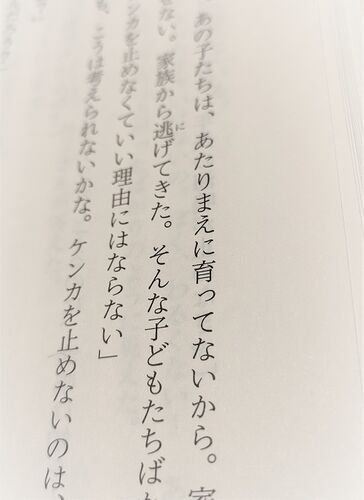 あの子たちは、あたりまえに育ってないから。家
ない。家族から逃げてきた。そんな子どもたちばか
ンカを止めなくていい理由にはならない」
も、こうは考えられないかな。ケンカを止めないのは、